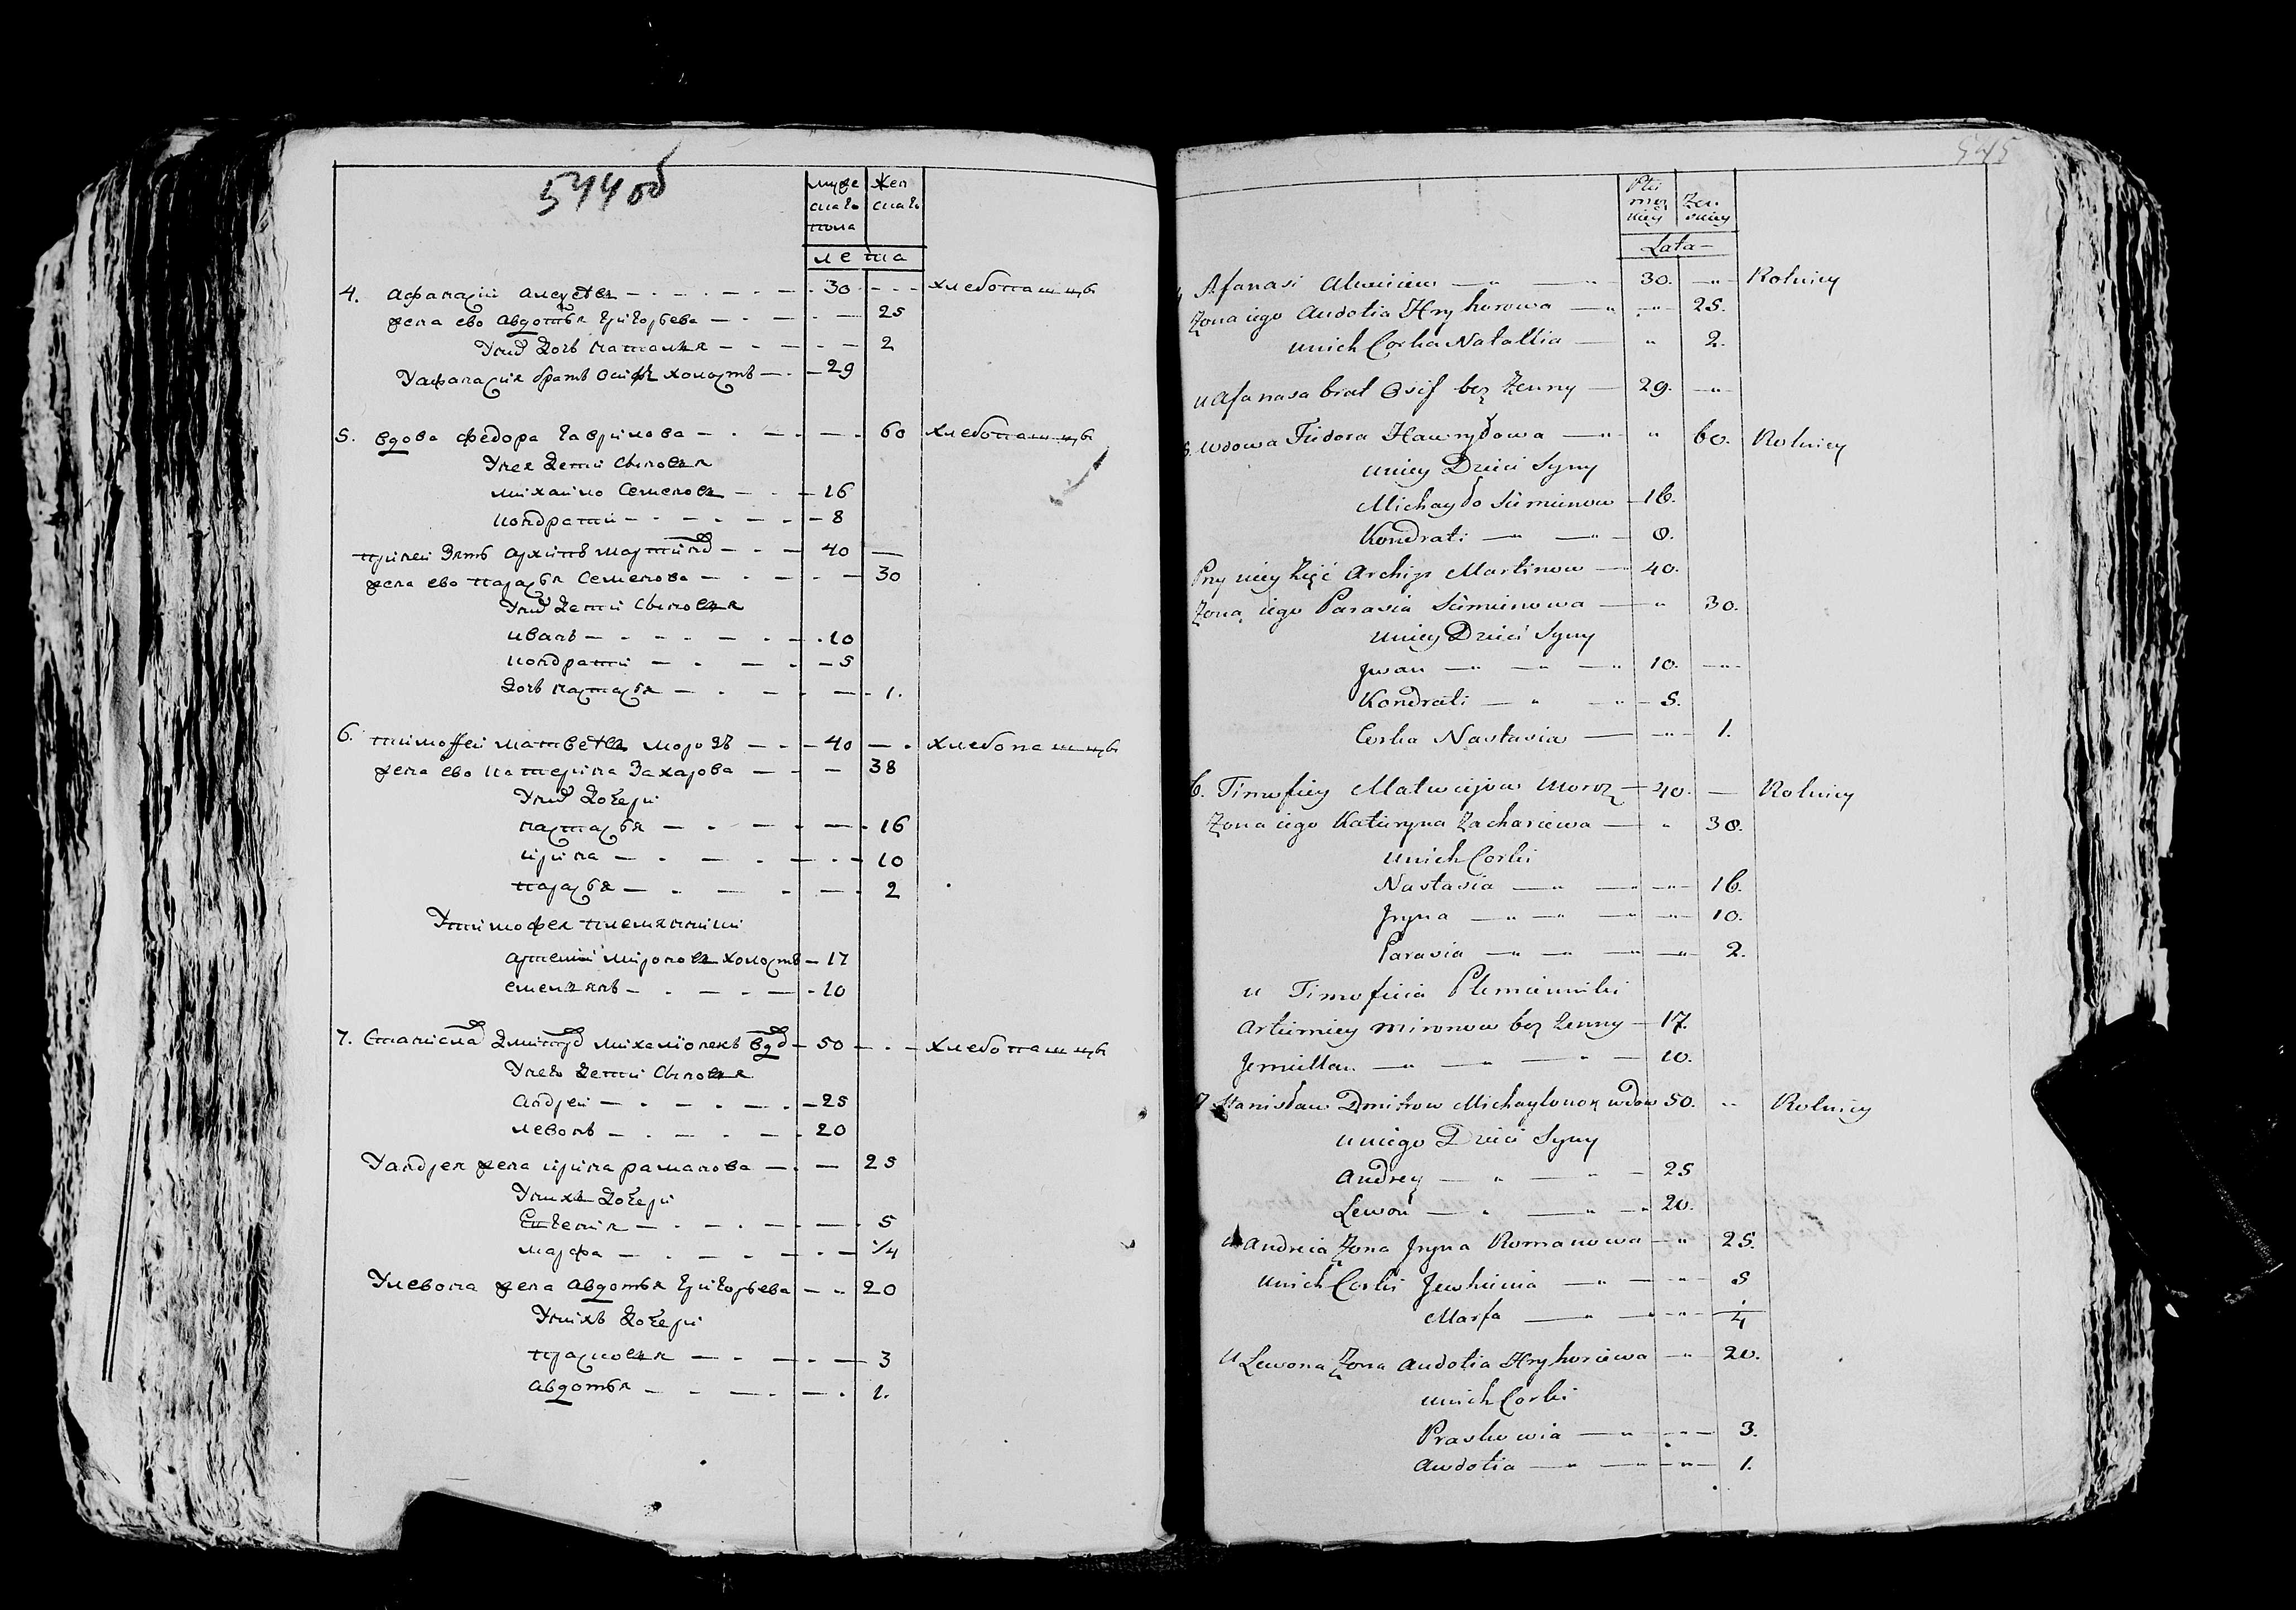 544об
муже
скаго
пола
Жен
скаго
лета
4. Афанасий Алексеевъ 30 хлебопашцы
жена ево Авдотья Григорьева 25
У них дочь Наталья 2
У Афанасия братъ Осифъ холостъ 29
5. вдова Федора Гаврилова 60 хлебопашцы
У нея дети сыновья
Михайло Семеновъ 16
Кондрати 8
при ней зять Архипъ Мартинов 40
жена ево Парасья Семенова 30
У них дети сыновья
Иванъ 10
Кондрати 5
дочь Настасья 1.
6. Тимоффей Матвеевъ Морозъ 40 хлебопашцы
жена ево Катерина Захарова 38
У них дочери
Настасья 16
Ирина 10
Парасья 2
У Тимофея племянники
Артемий Мироновъ холостъ 17
Емельянъ 10
7. Станислав Дмитров Михалонекъ вдов 50 хлебопашцы
У него дети сыновья
Андрей 25
Левонъ 20
У Андрея жена Ирина Раманова 25
У нихъ дочери
Евгения 5
Марфа 1/4
У Левона жена Авдотья Григорьева 20
У нихъ дочери
Прасковья 3
Авдотья 1.
545
Płci
męz
kiey
Zen
skiey
Lata
Afanasi Alexieiew 30. Rolnicy
Zona iego Audotia Hryhorowa 25.
unich Corka Natallia 2.
u Afanasa brat Osif bez Zenny 29.
5. Wdowa Fiedora Hawryłowa 60. Rolnicy
uniey Dzieci Syny
Michayło Siemienow 16.
Kondrati 8.
Przy niey Zięć Archip Martinow 40.
Zona iego Parasia Siemienowa 30.
uniey Dzieci Syny
Jwan 10.
Kondrati 5.
Corka Nastasia 1.
6. Timofiey Matwiejow Moroz 40. Rolnicy
Zona iego Kateryna Zachariewa 38.
unich Corki
Nastasia 16.
Jryna 10.
Parasia 2.
u Timofieia Plemienniki
Artiemiey Mironow bez Zenny 17.
Jemiellan 10.
7 Stanisław Dmitrow Michaylonok wdow 50. Rolnicy
uniego Dzieci Syny
Andrey 25
Lewon 20.
u Andreia Zona Jryna Romanowa 25.
unich Corki Jewhienia 5
Marfa 1/4
u Lewona Zona Audotia Hryhoriewa 20.
unich Corki
Praskowia 3.
Awdotia 1.